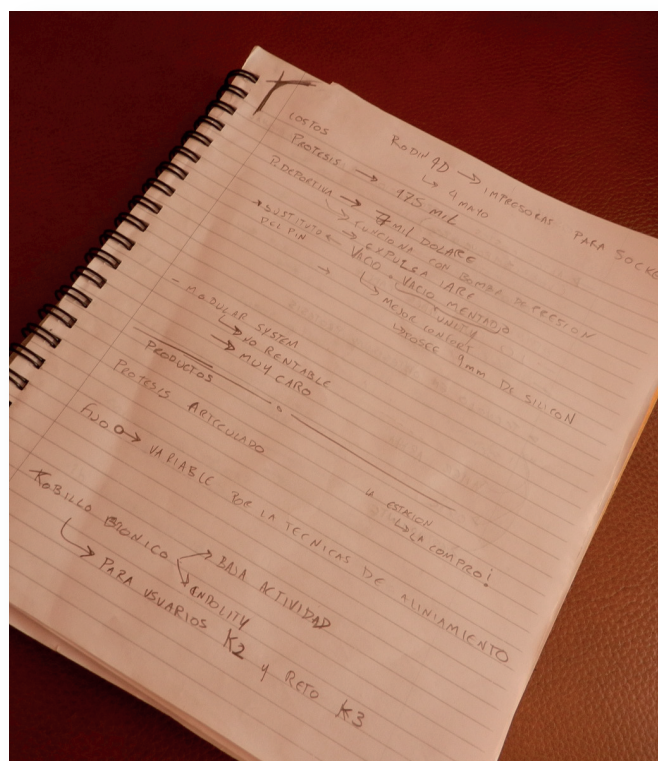 COSTOS
RODIN 4D → IMPRESORAS PARA SOCKE
↳ 4 MAYO
PROTESIS → 175 MIL
P. DEPORTIVA → 7 MIL DOLARE
↳ FUNCIONA CON BOMBA DE PRESION
→ EXPULSA AIRE
SUSTITUTO ← VACIO • VACIO MENTADO
DEL PIN
UNITY
→ ↳ MEJOR CONFORT
↳ POSEE 9mm DE SILICON
- MODULAR SYSTEM
↳ NO RENTABLE
→ MUY CARO
PRODUCTOS
PROTESIS ARTICULADO
LA ESTACION
↳ LA COMPRO!
FIJO → VARIABLE POR LA TECNICAS DE ALINIAMIENTO
TOBILLO BIONICO → BAJA ACTIVIDAD
→ ENDOLITY
↳ PARA USUARIOS K2 y RETO K3